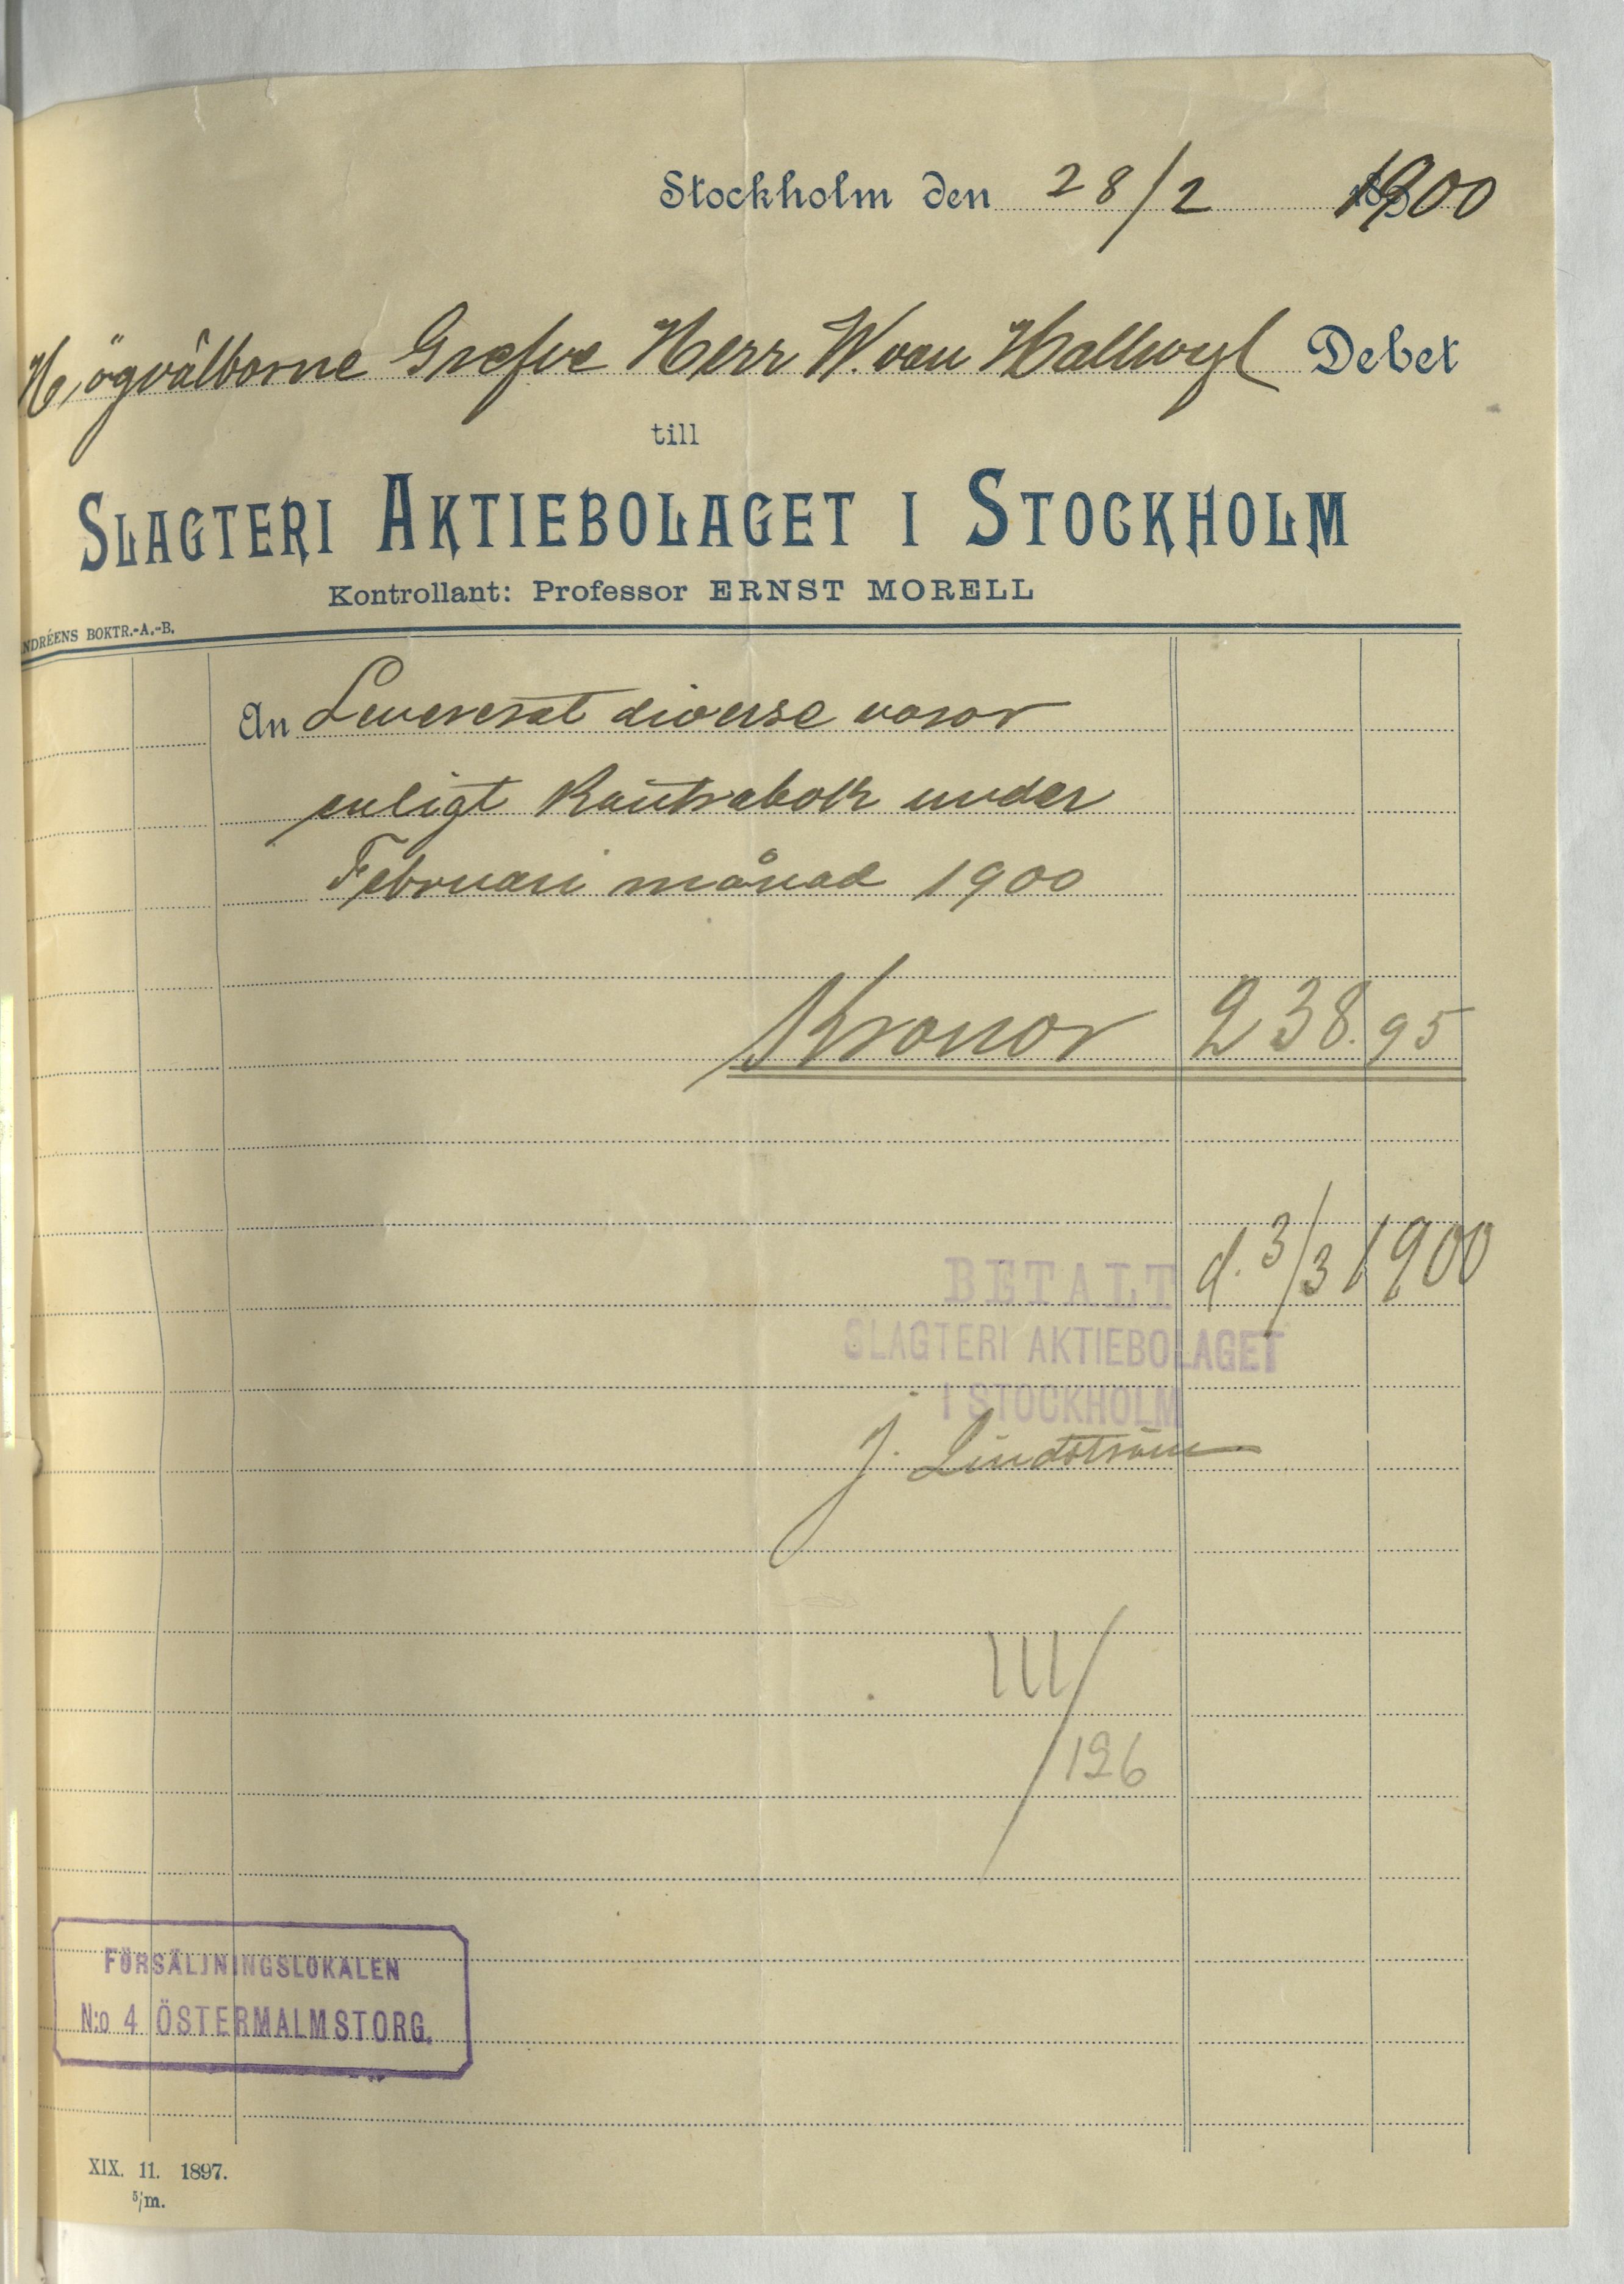 Stockholm den 28/2 1900
Högvälborne Grefve Herr W. von Hallwyl Debet
till
SLAGTERI AKTIEBOLAGET I STOCKHOLM
Kontrollant: Professor ERNST MORELL
NDRÉENS BOKTR.-A.-B.
An Levererat diverse varor
enligt Kontrabok under
Februari månad 1900
Kronor 238.95
d. 3/3 1900
BETALT
SLAGTERI AKTIEBOLAGET
I STOCKHOLM
J. Lindström
III/126
FÖRSÄLJNINGSLOKALEN
N:o 4 ÖSTERMALMSTORG.
XIX. 11. 1897.
5/m.